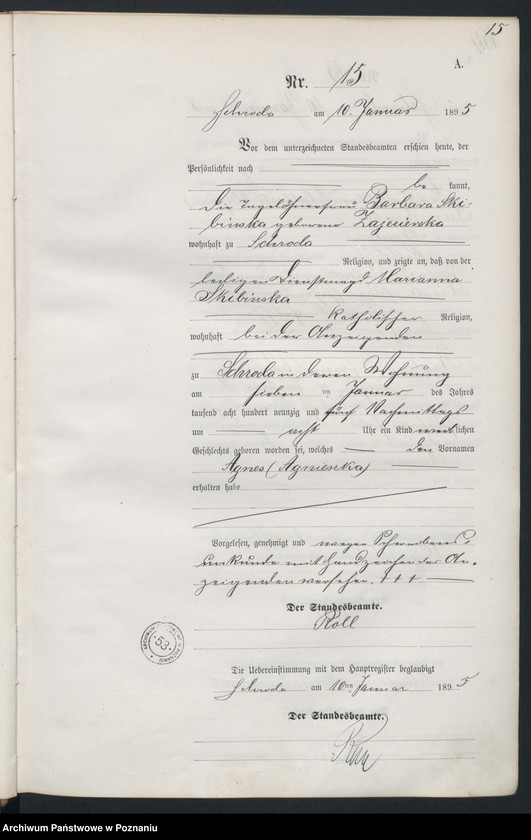 15
A.
Nr. 15
Schroda am 10. Januar 1895
Vor dem unterzeichneten Standesbeamten erschien heute, der
Persönlichkeit nach
be kannt,
die Tagelöhnerfrau Barbara Ski-
binska geborene Zajecierska
wohnhaft zu Schroda
Religion, und zeigte an, daß von der
ledigen Dienstmagd Marianna
Skibinska
katholischer Religion,
wohnhaft bei der Anzeigenden
zu Schroda in deren Wohnung
am sieben ten Januar des Jahres
tausend acht hundert neunzig und fünf Nachmittags
um acht Uhr ein Kind weiblichen
Geschlechts geboren worden sei, welches den Vornamen
Agnes (Agnieszka)
erhalten habe
Vorgelesen, genehmigt und wegen Schreibens-
unkunde mit Handzeichen der An-
zeigenden versehen. + + +
Der Standesbeamte.
Roll
Die Uebereinstimmung mit dem Hauptregister beglaubigt
Schroda am 10ten Januar 1895
Der Standesbeamte.
Roll
53
Archiwum Państwowe w Poznaniu